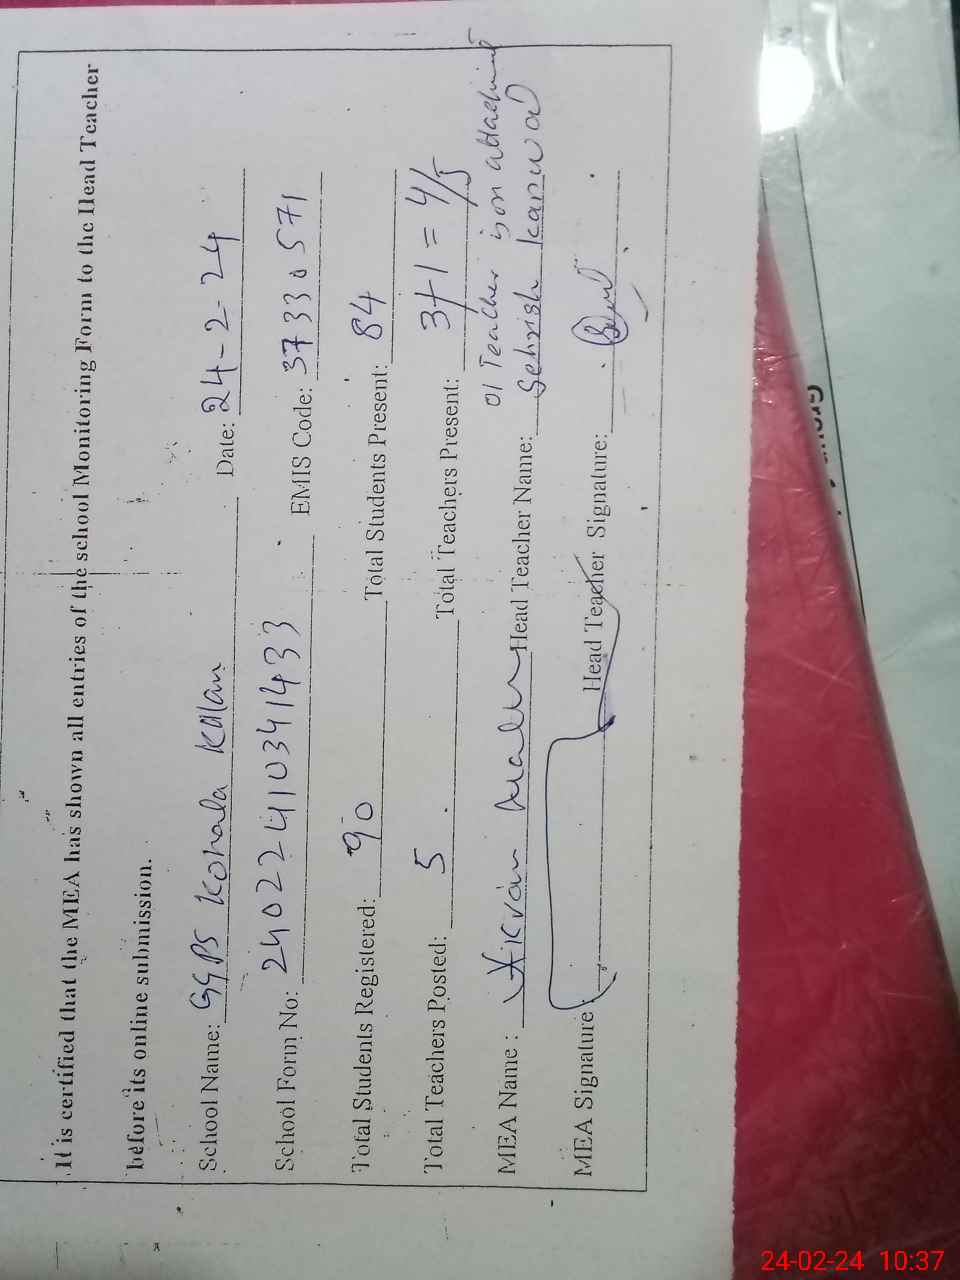 It is certified that the MEA has shown all entries of the school Monitoring Form to the Head Teacher
before its online submission.
School Name: GGPS Kohala Kalan Date: 24-2-24
School Form No: 24022410341433 EMIS Code: 37330571
Total Students Registered: 90 Total Students Present: 84
Total Teachers Posted: 5 Total Teachers Present: 3+1 = 4/5
01 Teacher is on attachment
MEA Name : Head Teacher Name: Sehrish Kanwal
MEA Signature : Head Teacher Signature:
24-02-24 10:37